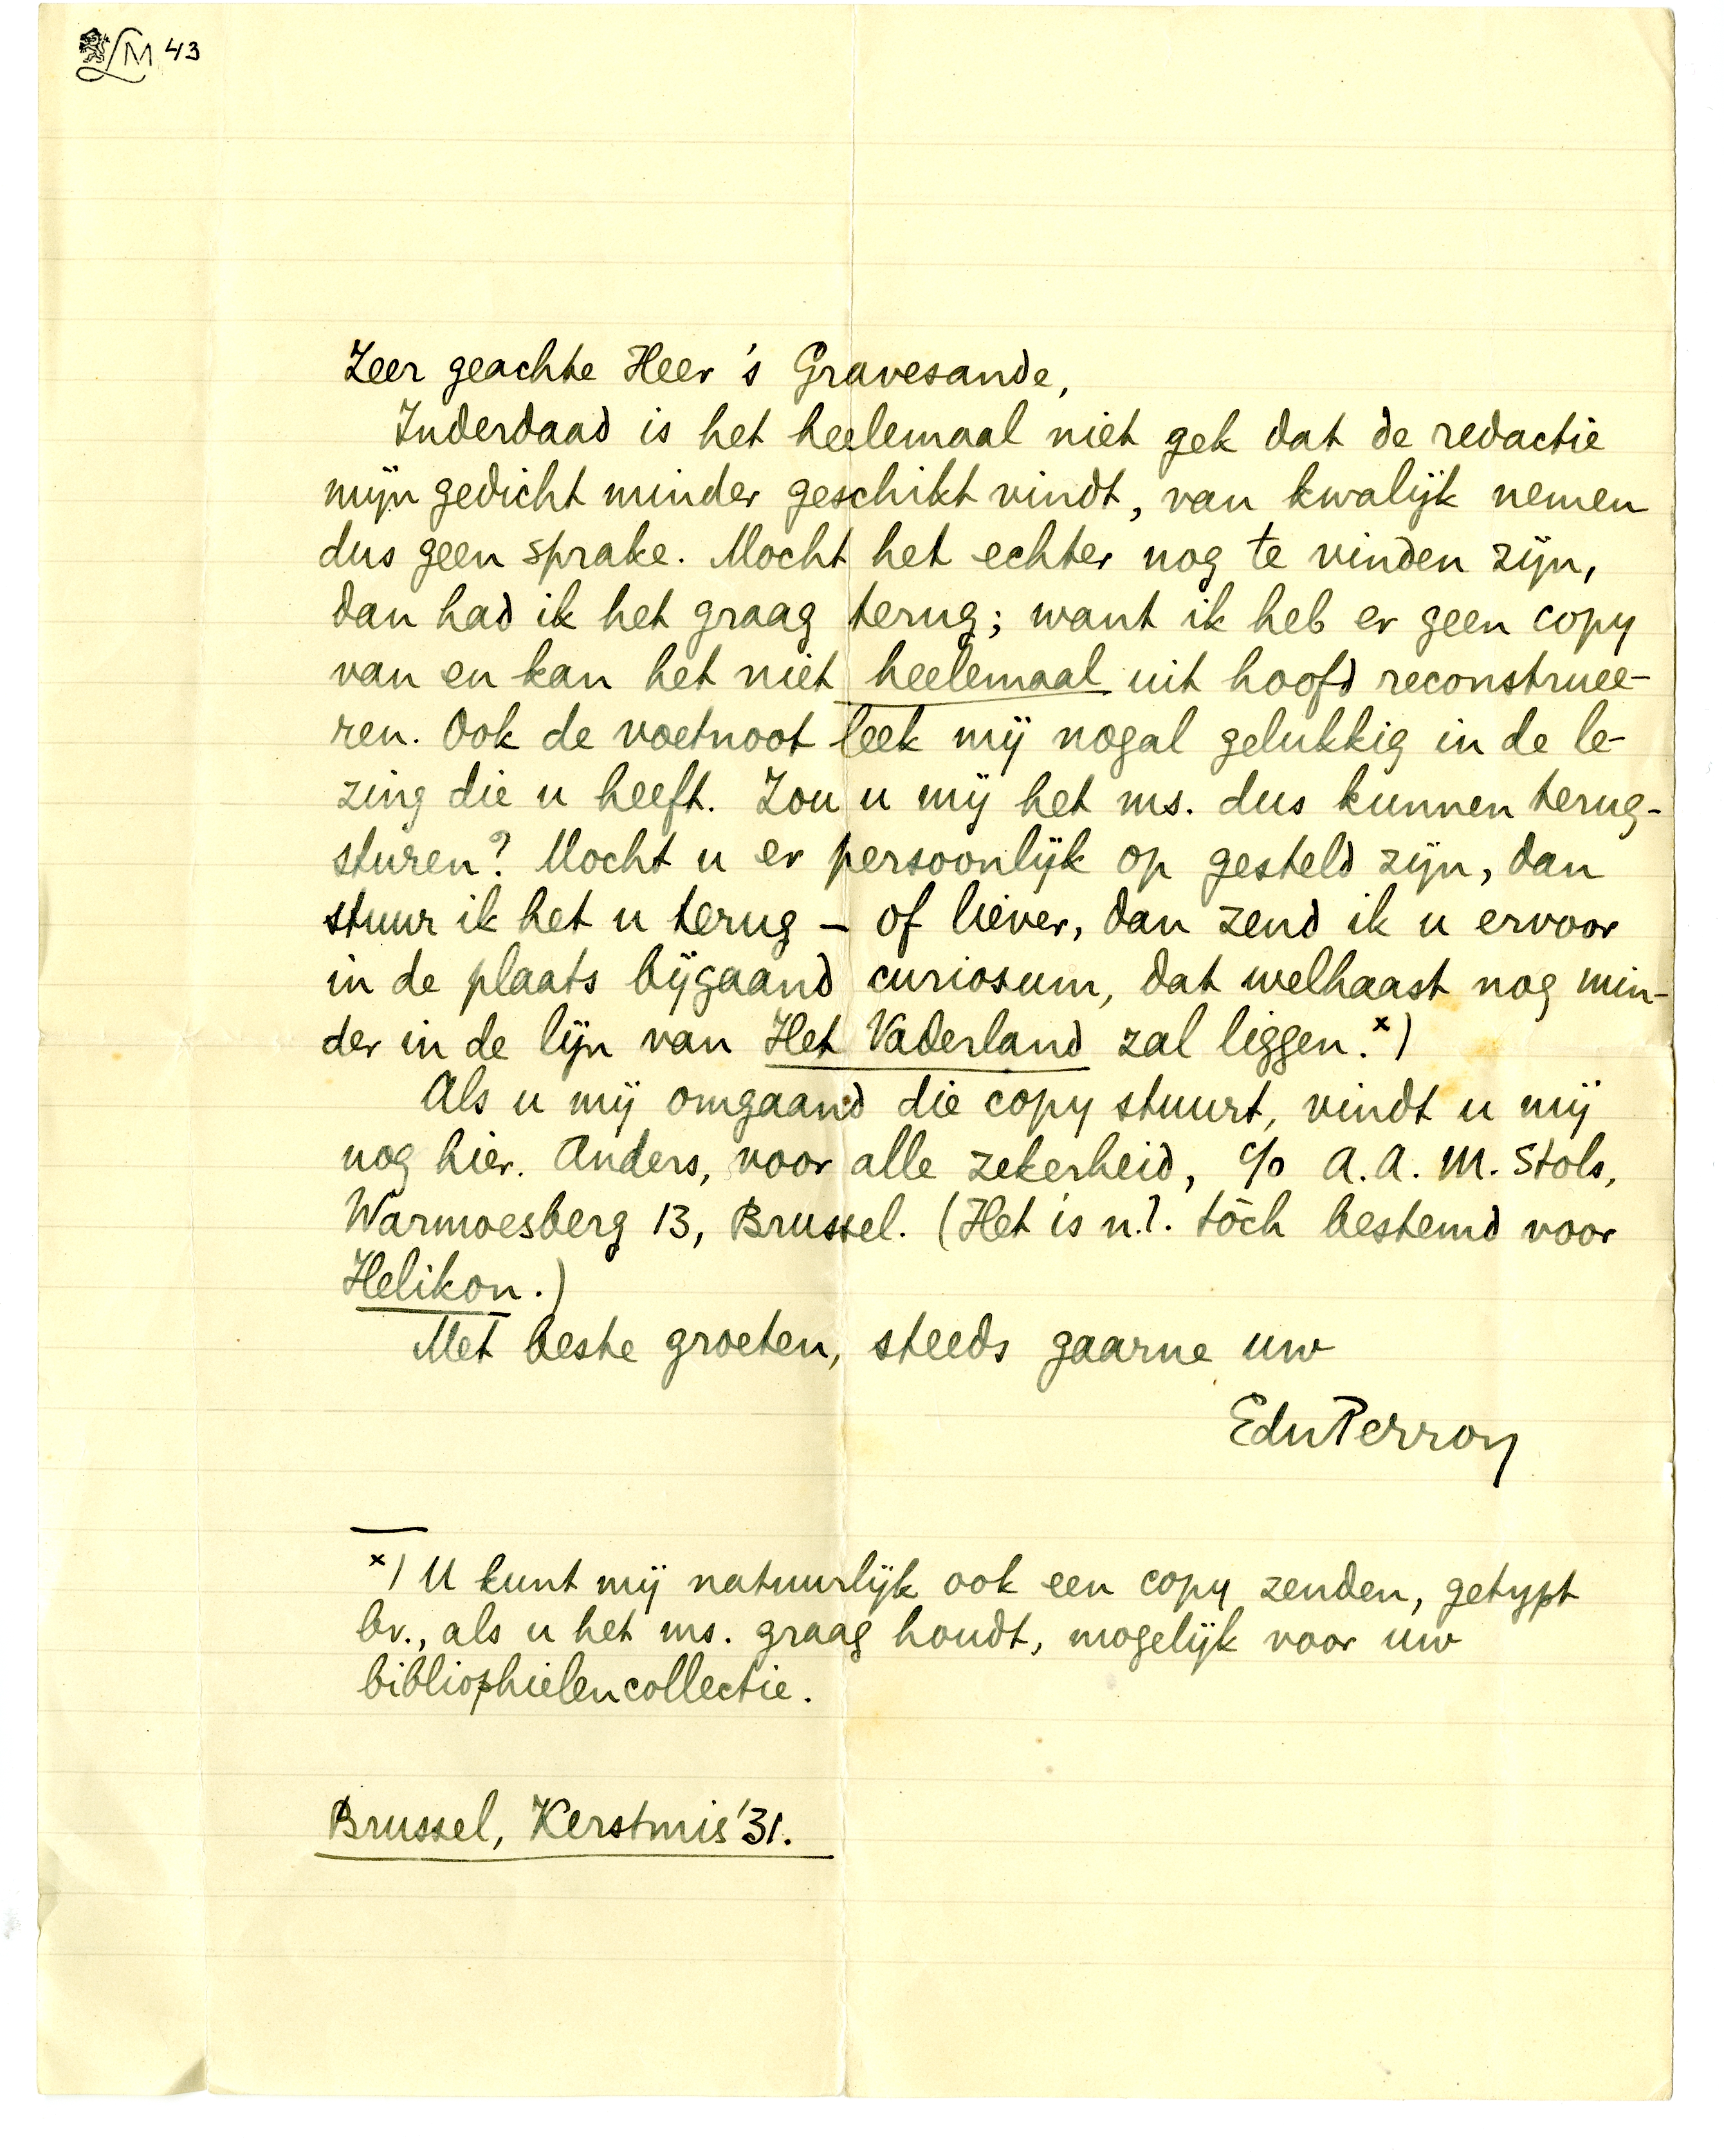 LM 43
Zeer geachte Heer 's Gravesande,
Inderdaad is het heelemaal niet gek dat de redactie
mijn gedicht minder geschikt vindt, van kwalijk nemen
dus geen sprake. Mocht het echter nog te vinden zijn,
dan had ik het graag terug; want ik heb er geen copy
van en kan het niet heelemaal uit hoofd reconstruee-
ren. Ook de voetnoot leek mij nogal gelukkig in de le-
zing die u heeft. Zou u mij het ms. dus kunnen terug-
sturen? Mocht u er persoonlijk op gesteld zijn, dan
stuur ik het u terug – of liever, dan zend ik u ervoor
in de plaats bijgaand curiosum, dat welhaast nog min-
der in de lijn van Het Vaderland zal liggen. x)
Als u mij omgaand die copy stuurt, vindt u mij
nog hier. Anders, voor alle zekerheid, c/o A.A.M. Stols,
Warmoesberg 13, Brussel. (Het is n.l. tòch bestemd voor
Helikon.)
Met beste groeten, steeds gaarne uw
EduPerron
x) U kunt mij natuurlijk ook een copy zenden, getypt
bv., als u het ms. graag houdt, mogelijk voor uw
bibliophielencollectie.
Brussel, Kerstmis '31.